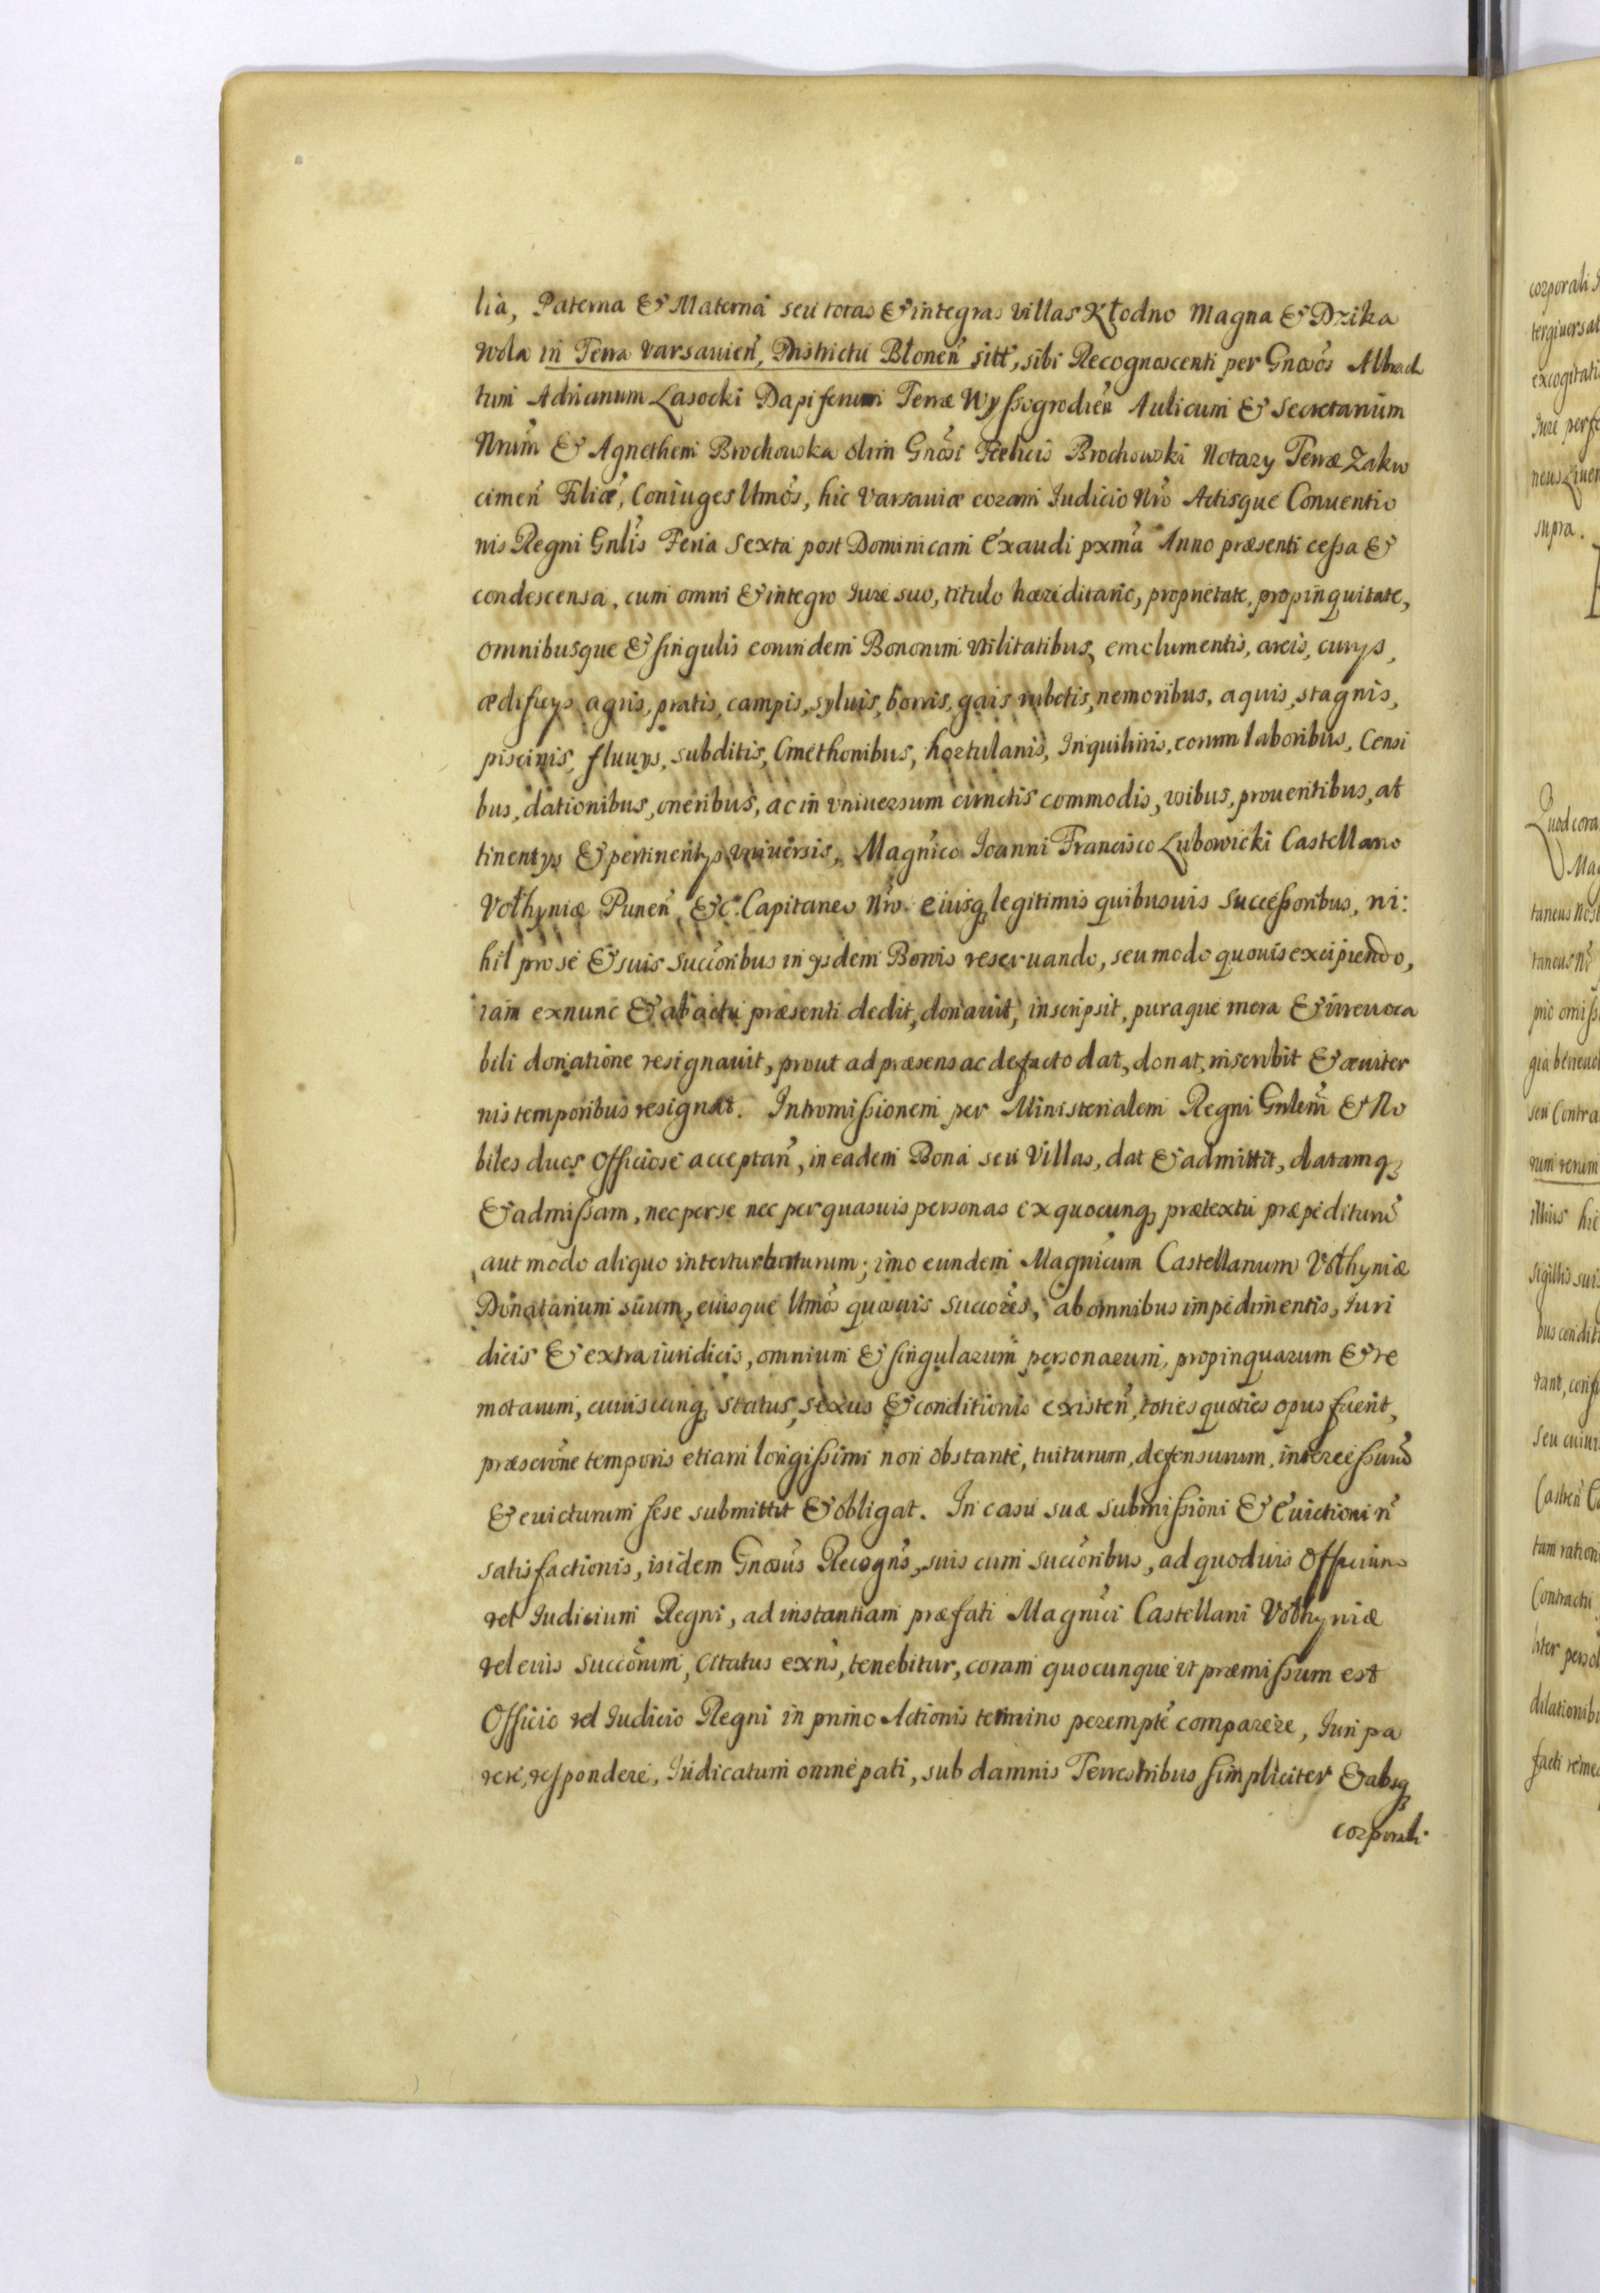 lia, Paterna & Materna seu totas & integras villas Kłodno Magna & Dzika
Wola in Terra Varsauień, Districtu Błoneń sitt, sibi Recognoscenti per Gnosos
tum Adrianum Lasocki Dapiferum Terræ Wyssogrodień Aulicum & Secretarium
Nrum & Agnethem Brochowska olim Gnosi Felicis Brochowski Notary Terræ Zakro
cimeń Filiæ, Coniuges lltmos, hic Varsauiæ coram Iudicio Nro Actisque Conuentio
nis Regni Gnlis Feria Sexta post Dominicam Exaudi pxma Anno præsenti cessa &
condescensa, cum omni & integro Iure suo, titulo hæreditario, proprietate, propinquitate,
omnibusque & singulis eorundem Bonorum vtilitatibus, emolumentis, areis, curys,
ædificys, agris, pratis, campis, syluis, borris, gais rubetis, nemoribus, aquis, stagnis,
piscinis, fluuys, subditis, Cmethonibus, hortulanis, Inquilinis, eorum laboribus, Censi
bus, dationibus, oneribus, ac in vniuersum cunctis commodis, vsibus, prouentibus, at
tinentys & pertinentys vniuersis, Magnico Ioanni Francisco Lubowicki Castellano
Vołhyniæ Puneń, &c. Capitaneo Nro. eiusq legitimis quibusuis Successoribus, ni:
hil pro se & suis Succoribus in ysdem Bonis reseruando, seu modo quouis excipiendo,
iam exnunc & ab actu præsenti dedit, donauit, inscripsit, puraque mera & irreuoca
bili donatione resignauit, prout ad præsens ac de facto dat, donat, inscribit & æuiter
nis temporibus resignat. Intromissionem per Ministerialem Regni Gnlem & No
biles duos Officiose acceptań, in eadem Bona seu Villas, dat & admittit, datamq
& admissam, nec per se nec per quasuis personas ex quocunq prætextu præpediturum
aut modo aliquo interturbaturum; imo eundem Magnicum Castellanum Vołhyniæ
Donatarium suum, eiusque lltmos quosuis Succores, ab omnibus impedimentis, Iuri
dicis & extraiuridicis, omnium & singularum personarum, propinquarum & re
motarum, cuiuscunq status, sexus & conditionis existeń, toties quoties opus fuerit,
præscrone temporis etiam longissimi non obstante, tuiturum, defensurum, intercessurum
& euicturum sese submittit & obligat. In casu suæ submissioni & Euictioni ń
satisfactionis, isidem Gnosus Recogńs, suis cum succoribus, ad quoduis Officium
vel Iudicium Regni, ad instantiam præfati Magnici Castellani Vołhyniæ
vel eius Succorum, Citatus exńs, tenebitur, coram quocunque vt præmissum est
Officio vel Iudicio Regni in primo Actionis termino perempte comparere, Iuri pa
rere, respondere, Iudicatum omne pati, sub damnis Terrestribus simpliciter & absq
corporali
corporali
tergiuersat
excogitati
Iure perfe
supra.
Quod cora
Mag
taneus Nost
taneus Nr
pio omiss
gia beneuol
seu Contra
rum rerum
illius hic
sigillis suis
bus condit
tam ration
Contractu
dilationib
facti reme